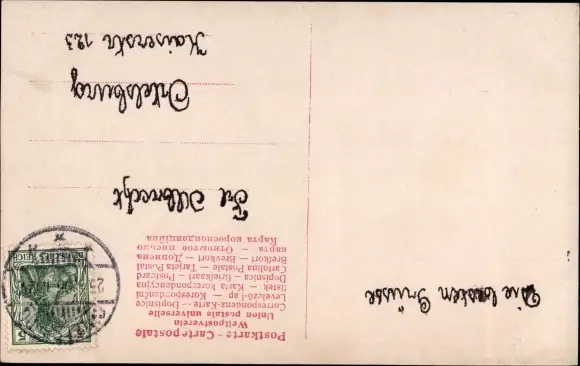 Postkarte — Carte postale
Weltpostverein
Union postale universelle
Correspondenz-Karte — Dopisnice
Levelező-Lap — Korespondenční
lístek — Karta korrespondencyjna
Dopisnica — Briefkaart — Postcard
Cartolina Postale — Tarjeta Postal
Brefkort — Brevkort — Дописна
карта — Открытое письмо
Карта кореспонденційна
Frl Albrecht
Ortelsburg
Kaiserstr 123
Die besten Grüsse
REICH
5